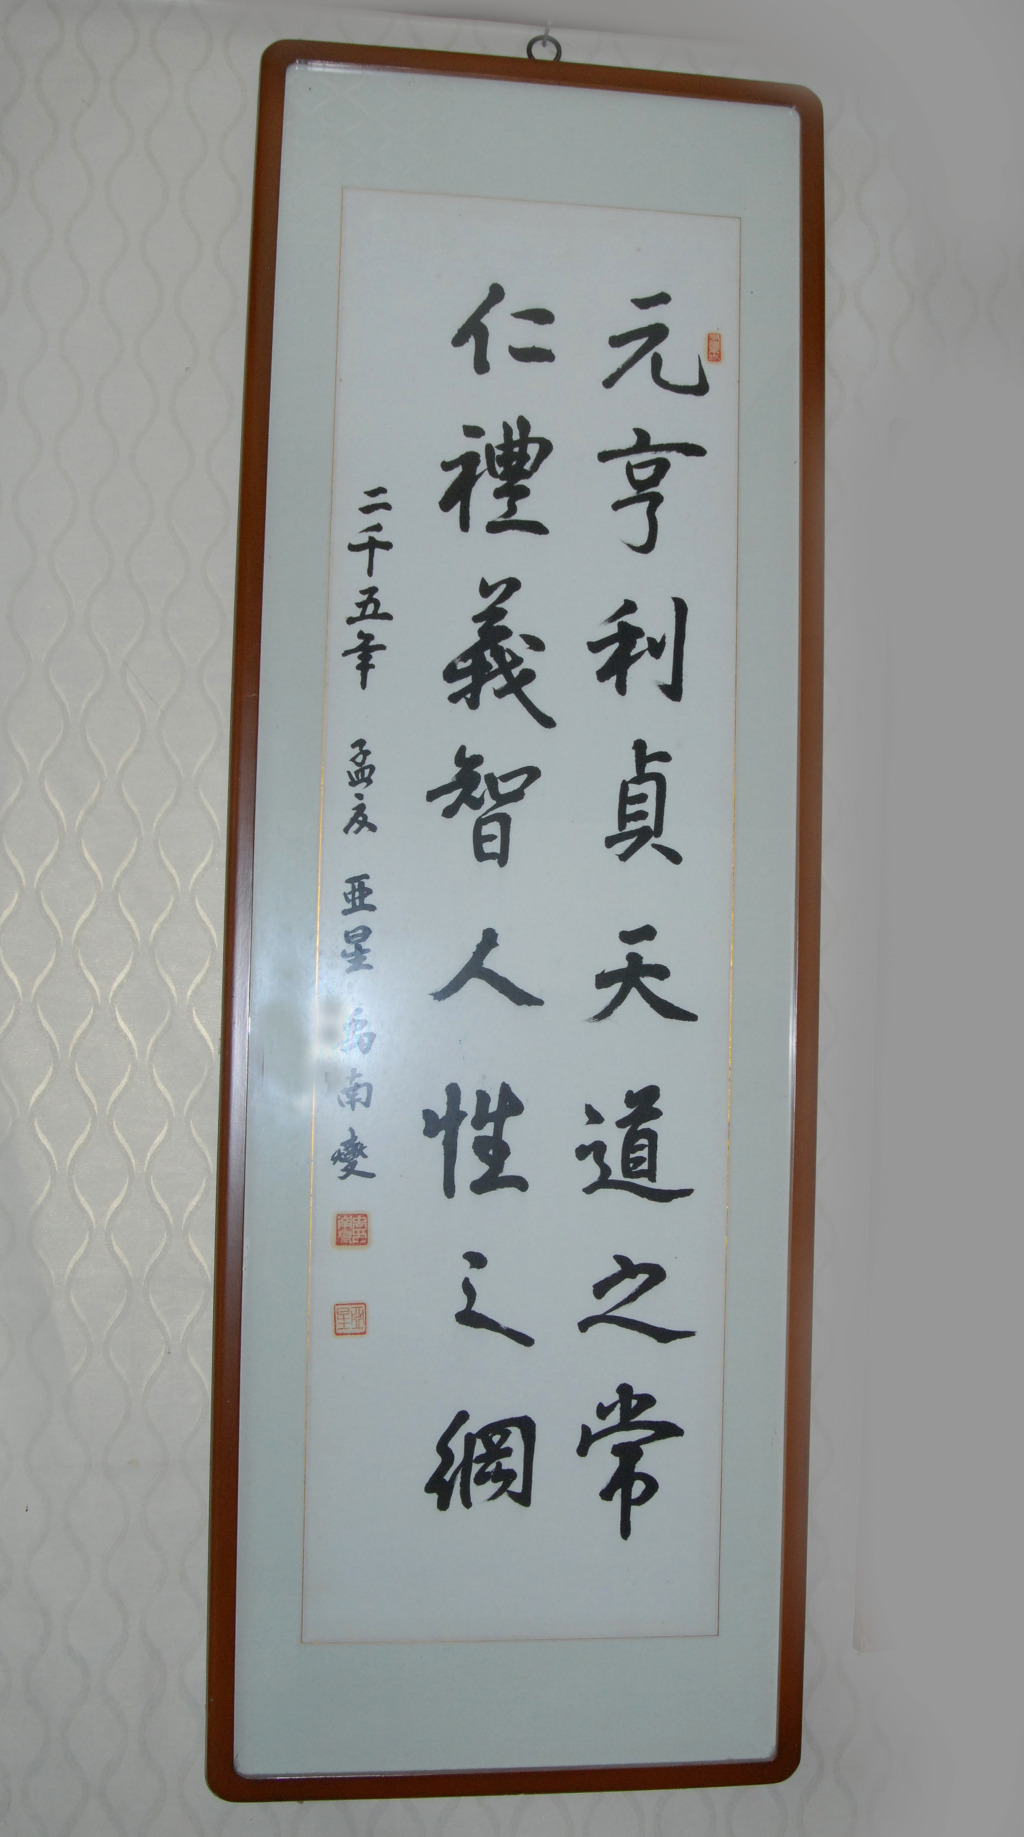 元亨利貞天道之常
仁禮義智人性之綱
二千五年 孟夏 亞星 禹南燮